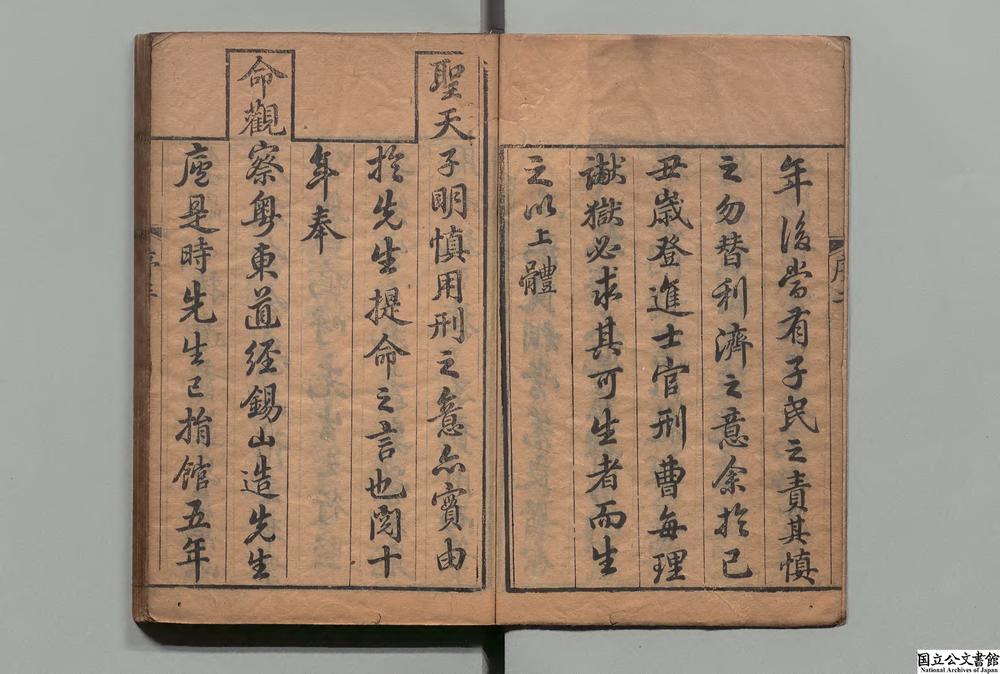 年後當有子民之責其慎
之勿替利濟之意余於己
丑歲登進士官刑曹每理
讞獄必求其可生者而生
之以上體
聖天子明慎用刑之意亦實由
於先生提命之言也閱十
年奉
命觀察粵東道經錫山造先生
廬是時先生已捐館五年
国立公文書館
National Archives of Japan